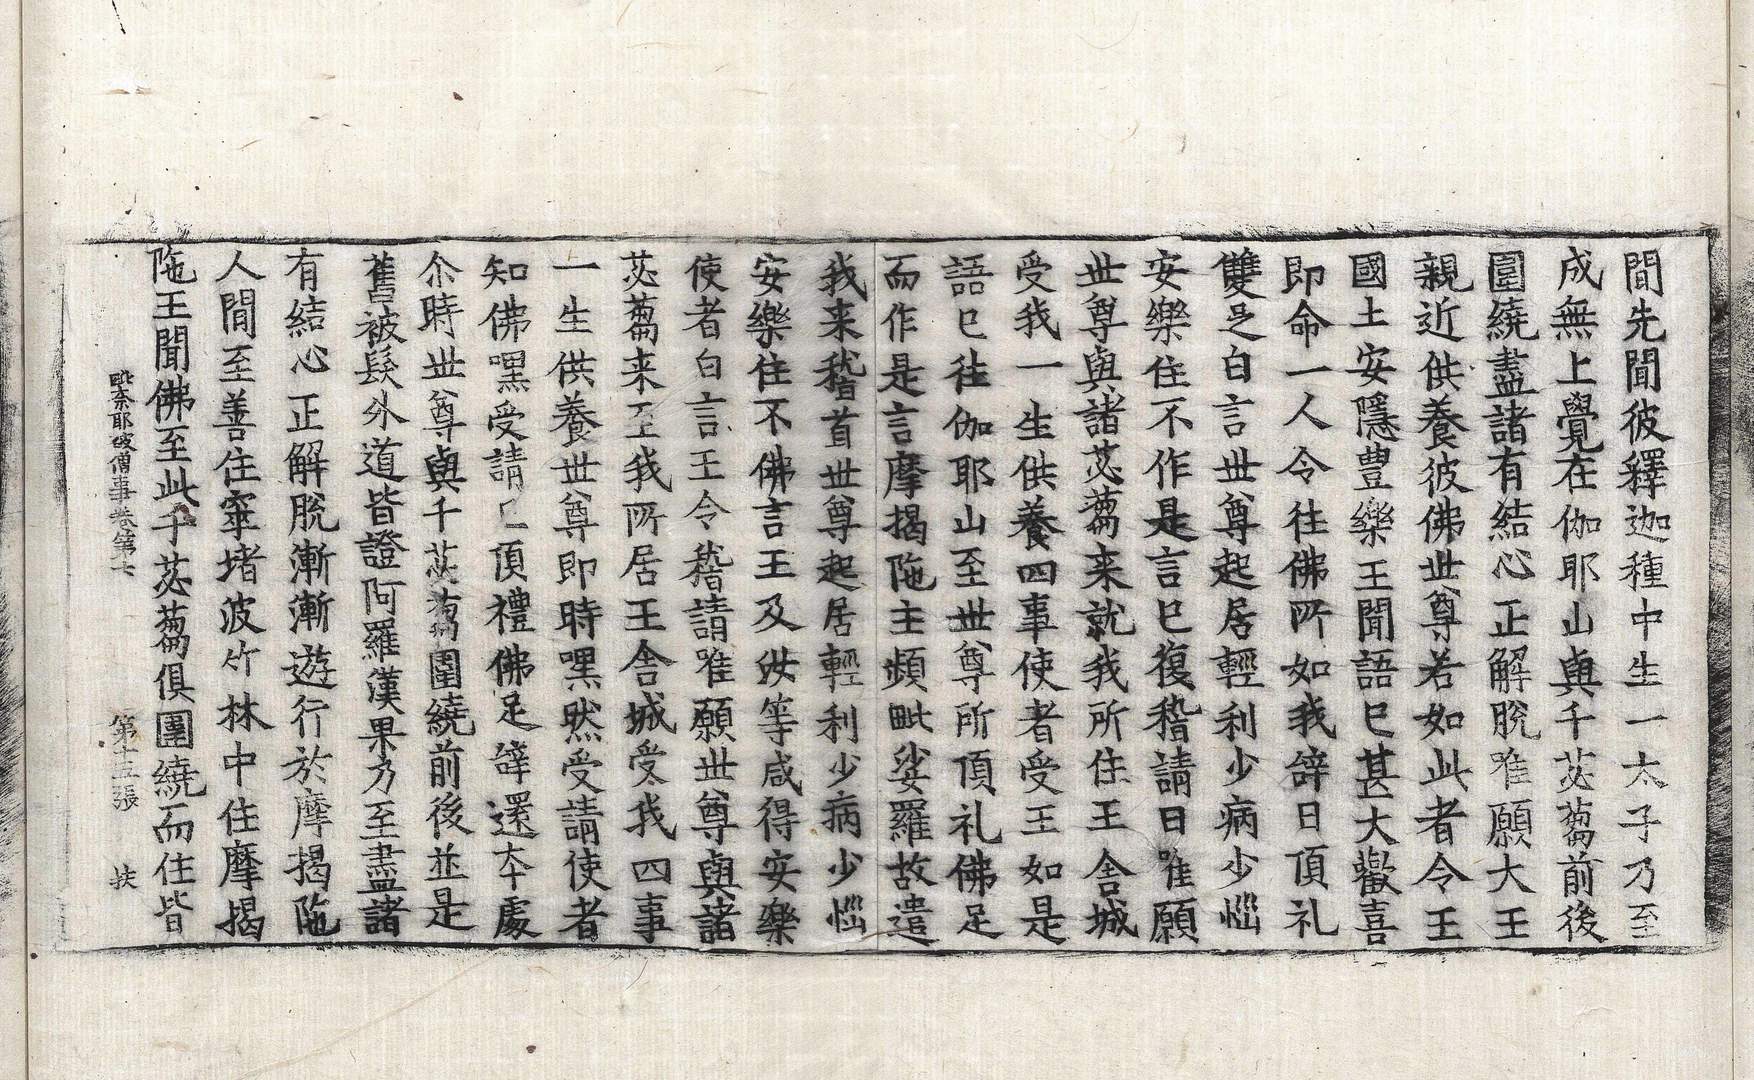 間先聞彼釋迦種中生一太子乃至
成無上覺在伽耶山與千苾蒭前後
圍繞盡諸有結心正解脫唯願大王
親近供養彼佛世尊若如此者令王
國土安隱豊樂王聞語已甚大歡喜
即命一人令往佛所如我辝曰頂礼
雙足白言世尊起居輕利少病少惱
安樂住不作是言已復稽請曰唯願
世尊與諸苾蒭来就我所住王舍城
受我一生供養四事使者受王如是
語已往伽耶山至世尊所頂礼佛足
而作是言摩揭陁主頻毗娑羅故遣
我来稽首世尊起居輕利少病少惱
安樂住不佛言王及汝等咸得安樂
使者白言王令稽請唯願世尊與諸
苾蒭来至我所居王舍城受我四事
一生供養世尊即時嘿然受請使者
知佛嘿受請已頂禮佛足辝還夲處
尒時世尊與千苾蒭圍繞前後並是
舊被髮外道皆證阿羅漢果乃至盡諸
有結心正解脫漸漸遊行於摩揭陁
人間至善住窣堵波竹林中住摩揭
陁王聞佛至此千苾蒭俱圍繞而住皆
毗奈耶破僧事卷第七 第十三張 扶